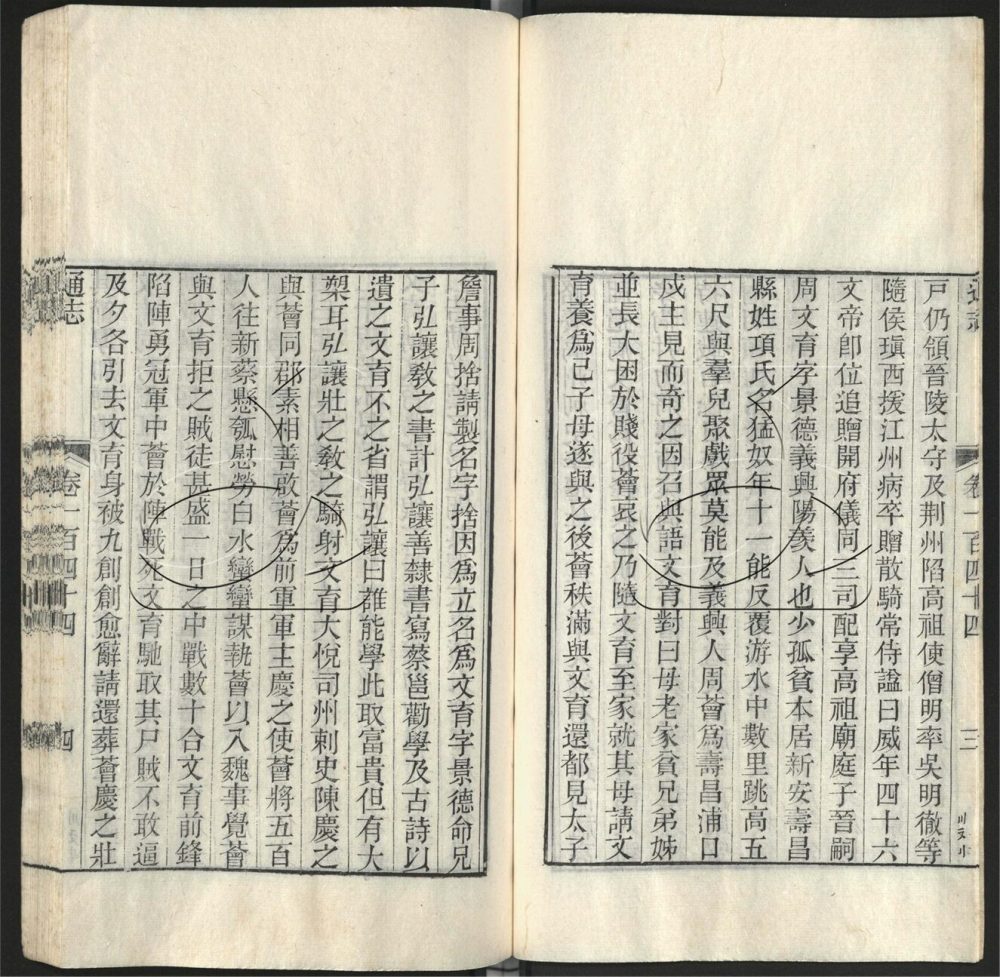 通志
卷一百四十四
三
戸仍領晉陵太守及荆州陷高祖使僧明率吳明徹等
隨侯瑱西援江州病卒贈散騎常侍諡曰威年四十六
文帝卽位追贈開府儀同三司配享高祖廟庭子晉嗣
周文育字景德義興陽羨人也少孤貧本居新安壽昌
縣姓項氏名猛奴年十一能反覆游水中數里跳高五
六尺與羣兒聚戲眾莫能及義興人周薈爲壽昌浦口
戍主見而奇之因召與語文育對曰母老家貧兄弟姊
並長大困於賤役薈哀之乃隨文育至家就其母請文
育養爲己子母遂與之後薈秩滿與文育還都見太子
詹事周捨請製名字捨因爲立名爲文育字景德命兄
子弘讓敎之書計弘讓善隸書寫蔡邕勸學及古詩以
遺之文育不之省謂弘讓曰誰能學此取富貴但有大
槊耳弘讓壯之敎之騎射文育大悅司州刺史陳慶之
與薈同郡素相善啟薈爲前軍軍主慶之使薈將五百
人往新蔡懸瓠慰勞白水蠻蠻謀執薈以入魏事覺薈
與文育拒之賊徒甚盛一日之中戰數十合文育前鋒
陷陣勇冠軍中薈於陣戰死文育馳取其尸賊不敢逼
及夕各引去文育身被九創創愈辭請還葬薈慶之壯
通志
卷一百四十四
四